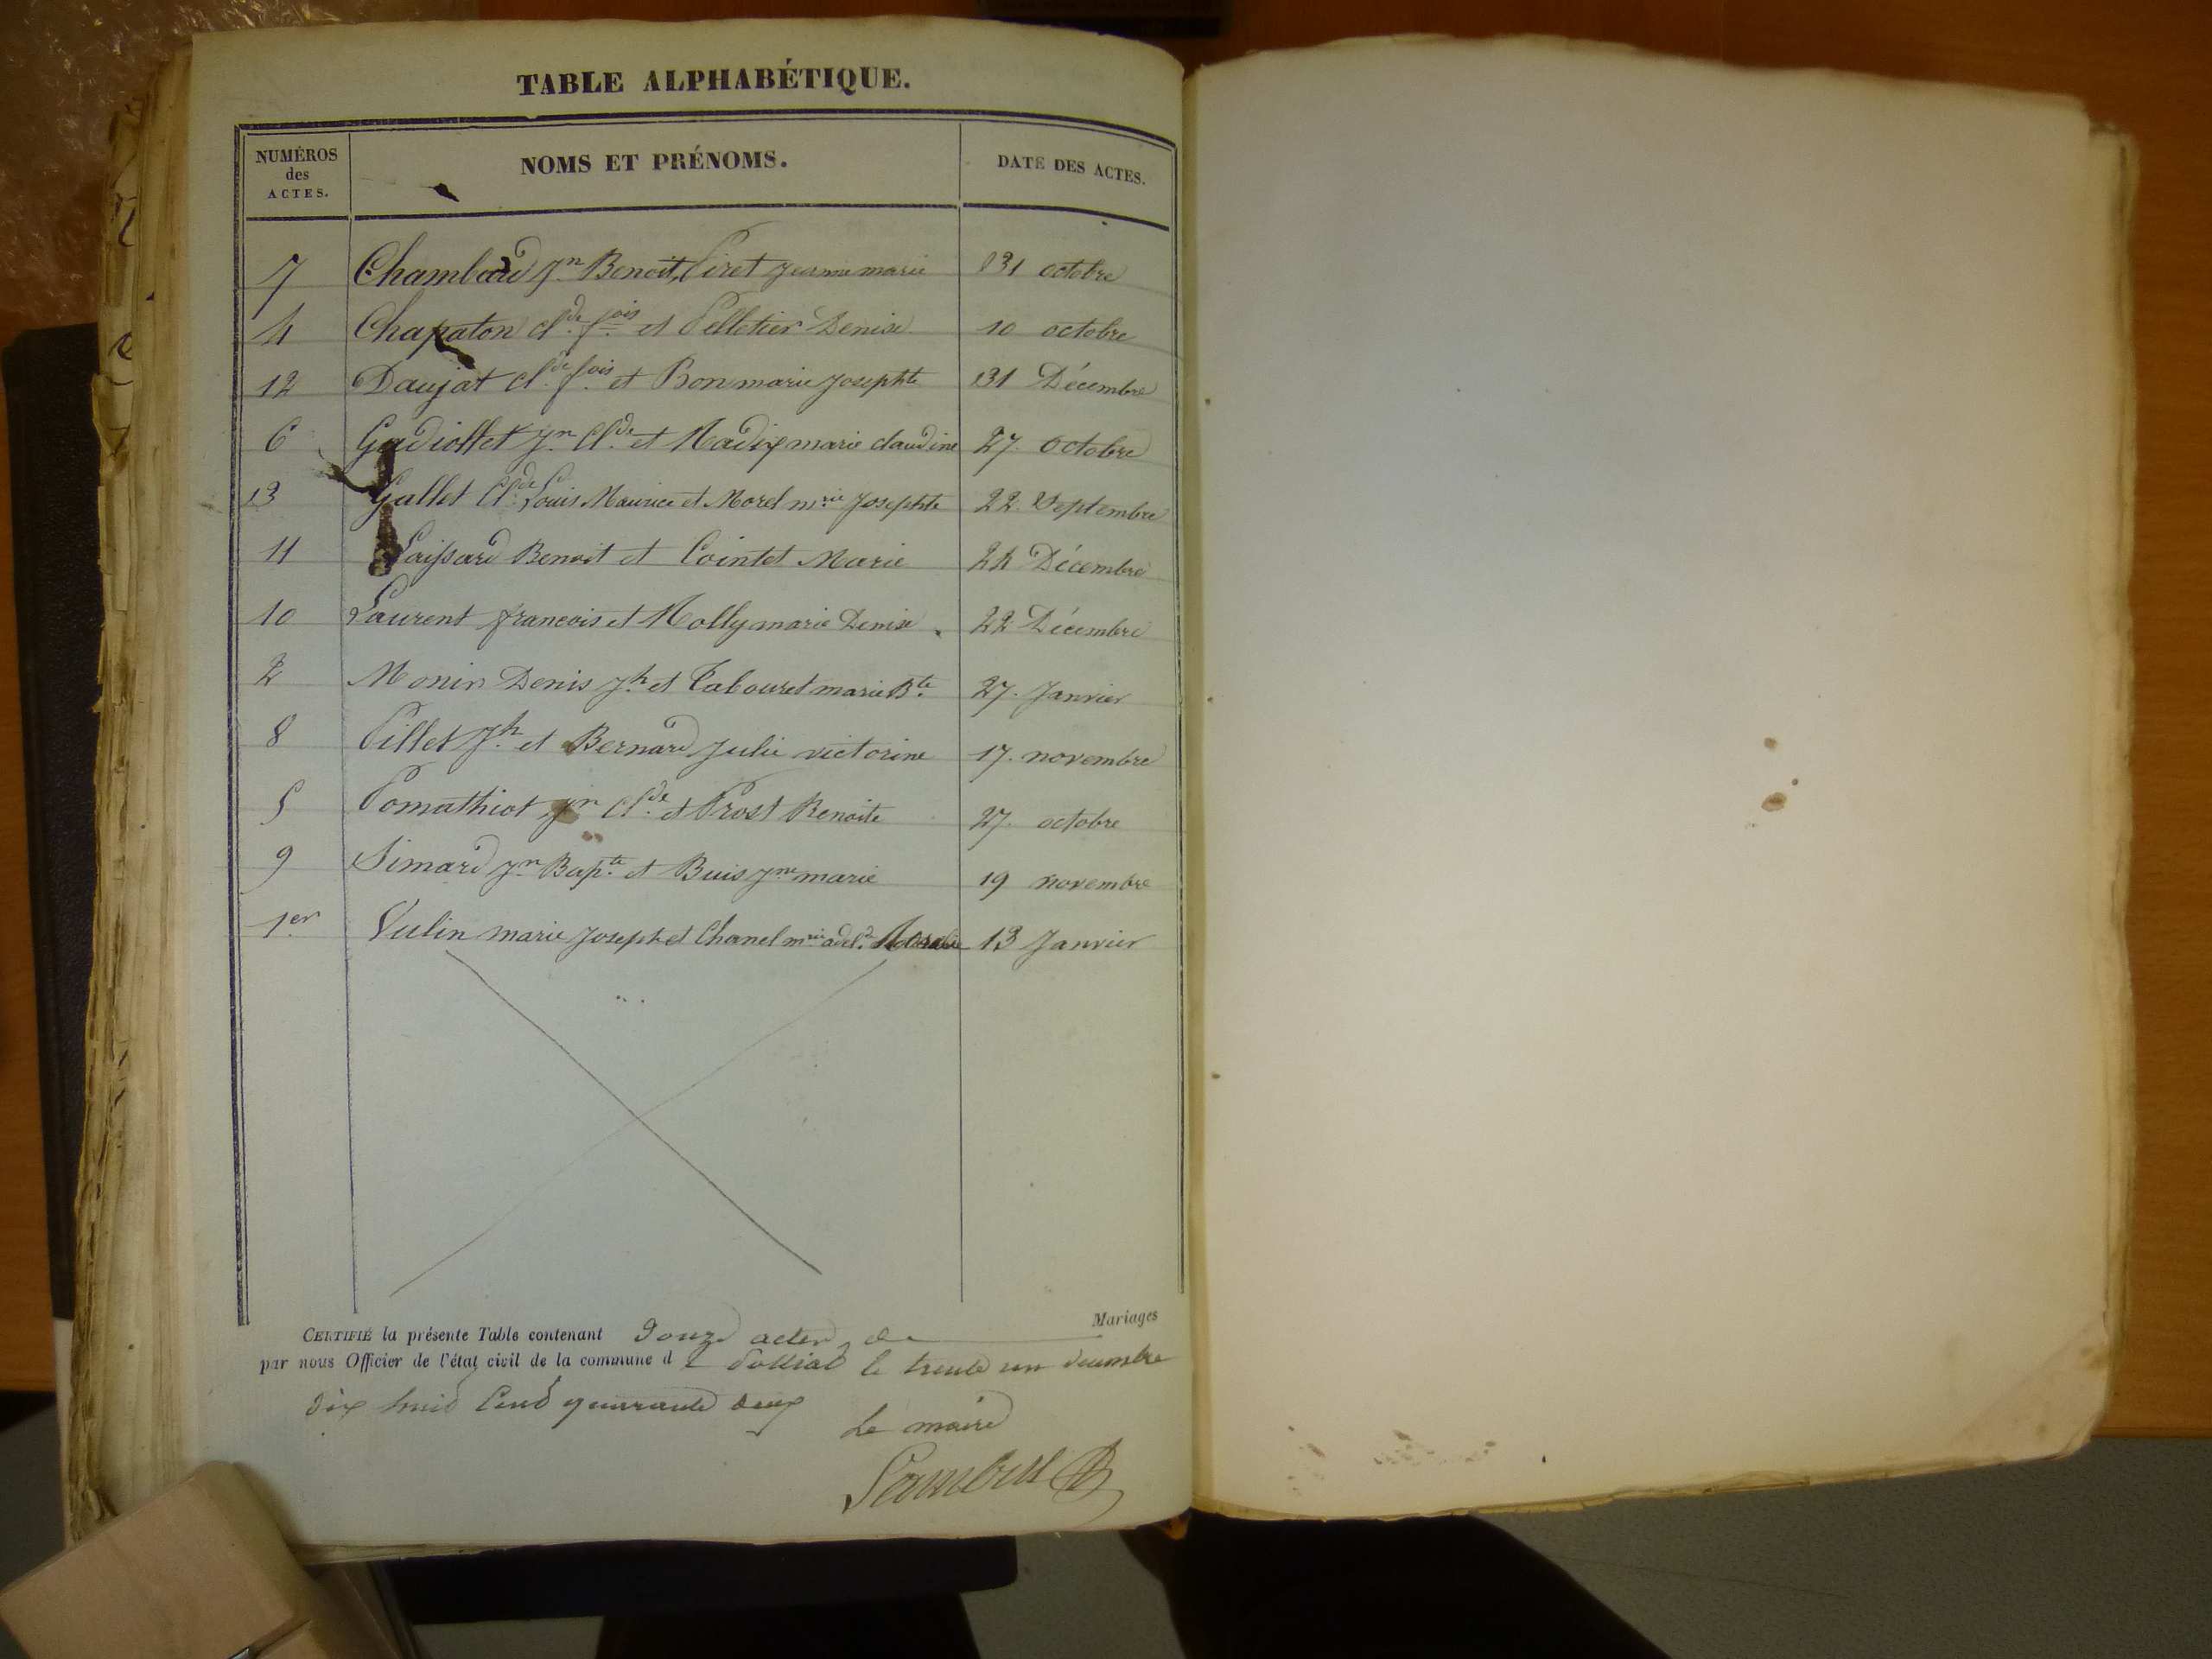 TABLE ALPHABÉTIQUE.
NUMÉROS des ACTES. NOMS ET PRÉNOMS. DATE DES ACTES.
7 Chambard Jn Benoit, Piret Jeanne marie 31 octobre
4 Chapaton Cl.de f.ois et Pelletier Denise 10 octobre
12 Daujat Cl.de f.ois et Bon marie Josephte 31 Décembre
6 Gadiollet Jn Cl.de et Nadix marie claudine 27. octobre
13 Gallet Cl.de Louis Maurice et Morel m.rie Josephte 22 Septembre
11 Laissard Benoit et Cointet Marie 24 Décembre
10 Laurent francois et Molly marie Denise 22 Décembre
2 Monin Denis J.h et Tabouret marie B.te 27. Janvier
8 Pillet J.h et Bernard Julie victorine 17. novembre
5 Pomathiot Jn Cl.de et Prost Benoite 27. octobre
9 Simard Jn Bap.te et Buis Jne marie 19 novembre
1er Vulin marie Joseph et Chanel m.rie adel.e 13 Janvier
CERTIFIÉ la présente Table contenant Douze actes de Mariages
par nous Officier de l'état civil de la commune de Polliat le trente un decembre
dix huit Cent quarante deux
Le maire